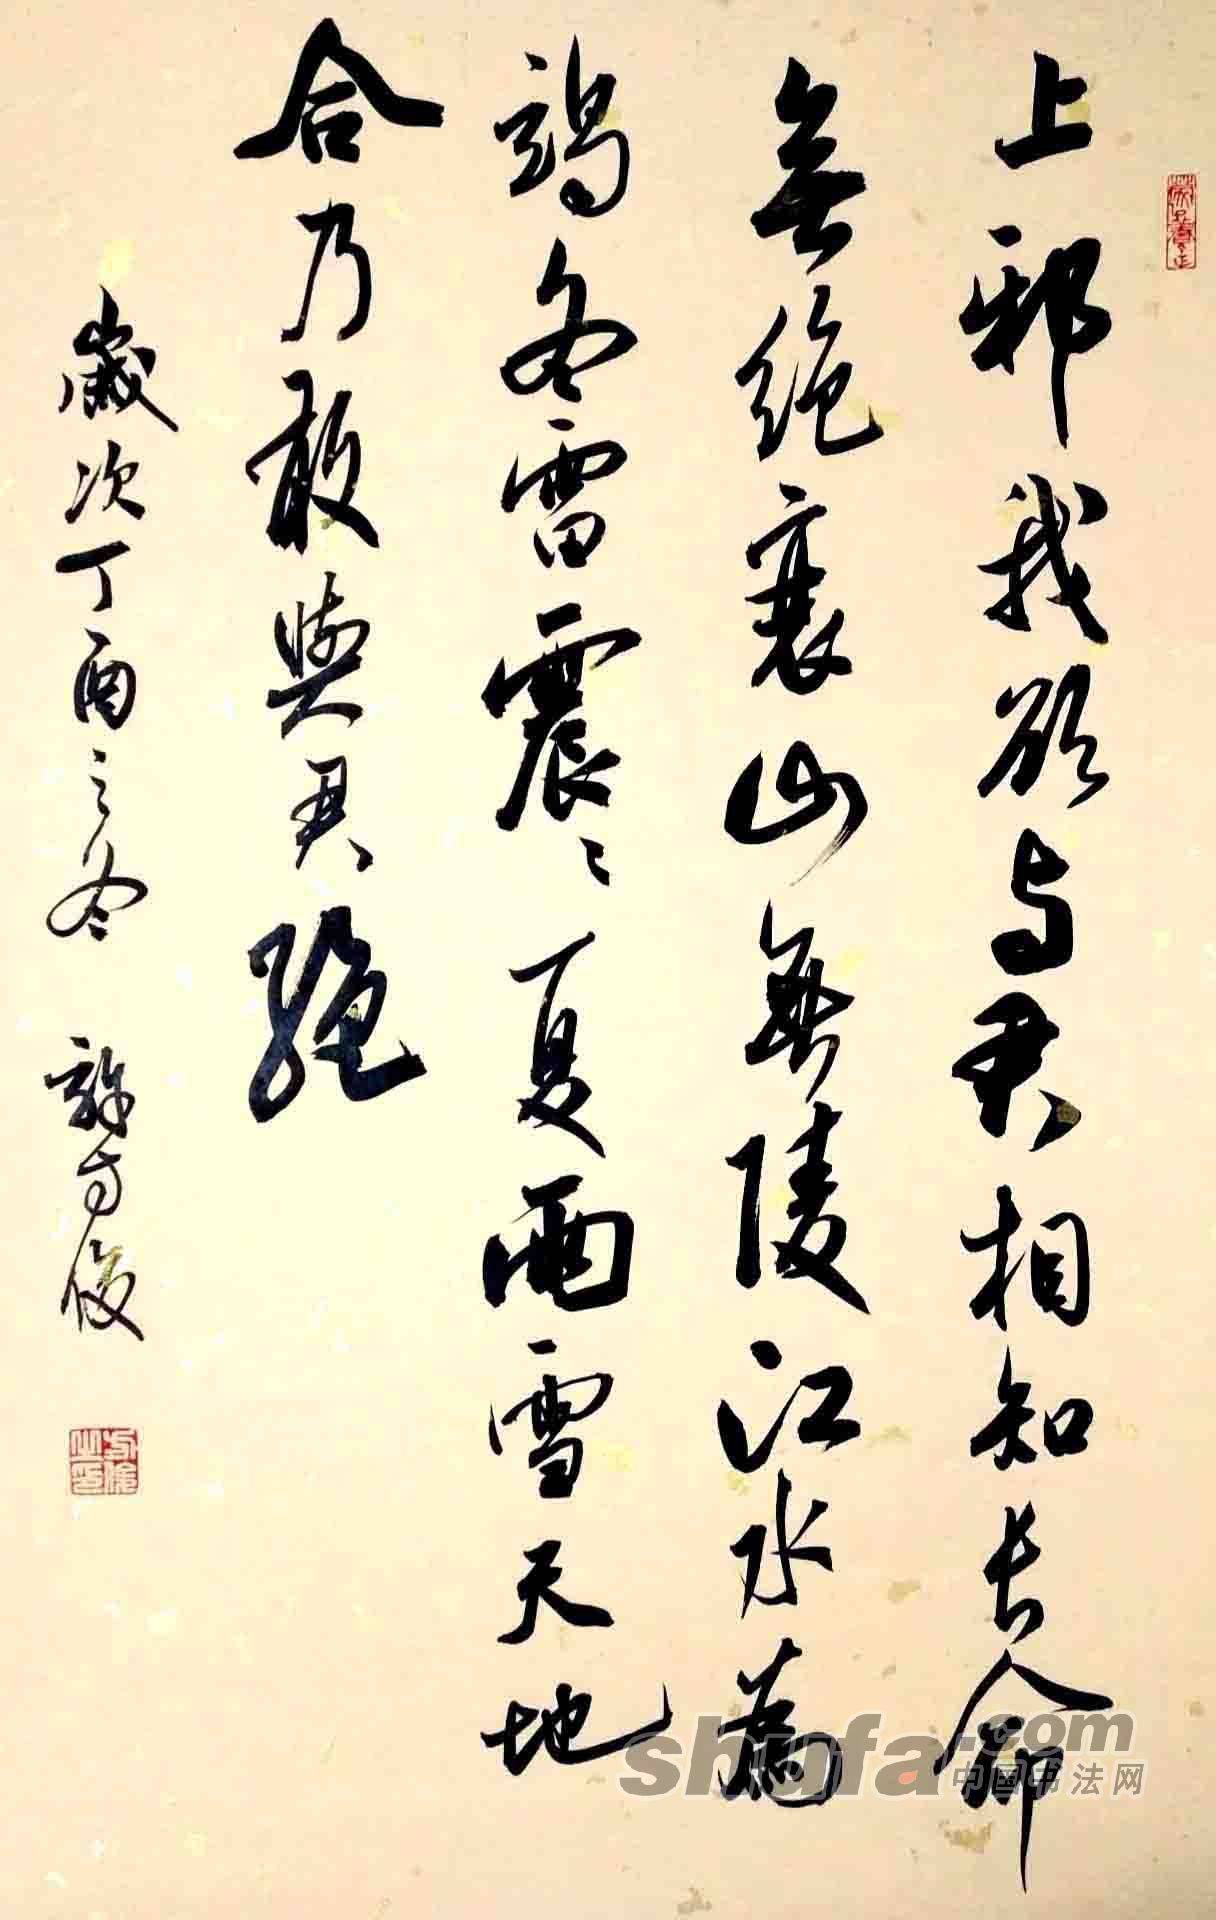 上邪我欲与君相知长命
無绝衰山無陵江水為
竭冬雷震〻夏雨雪天地
合乃敢與君絶
歲次丁酉之冬 方俊
shufa.com
中国书法网